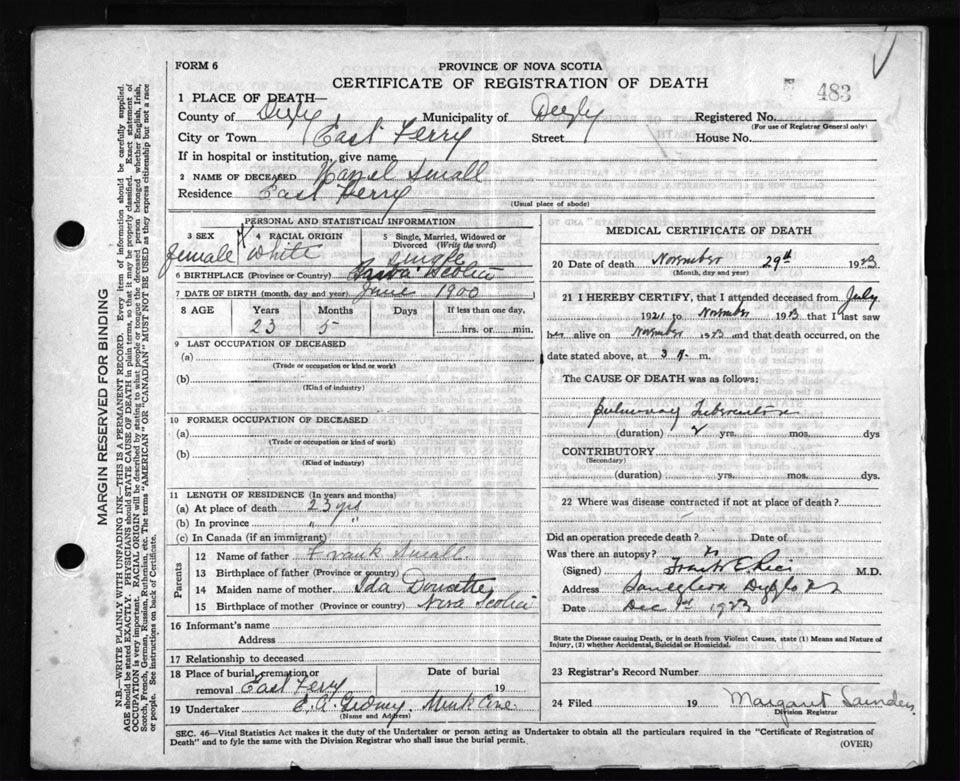 FORM 6
PROVINCE OF NOVA SCOTIA
CERTIFICATE OF REGISTRATION OF DEATH
483
1 PLACE OF DEATH—
County of Digby Municipality of Digby Registered No.
(For use of Registrar General only)
City or Town East Ferry Street House No.
If in hospital or institution, give name
2 NAME OF DECEASED Hazel Small
Residence East Ferry
(Usual place of abode)
PERSONAL AND STATISTICAL INFORMATION
3 SEX 4 RACIAL ORIGIN 5 Single, Married, Widowed or Divorced (Write the word)
female White Single
6 BIRTHPLACE (Province or Country) Nova Scotia
7 DATE OF BIRTH (month, day and year) June 1900
8 AGE Years Months Days If less than one day,
23 5 hrs. or min.
9 LAST OCCUPATION OF DECEASED
(a)
(Trade or occupation or kind or work)
(b)
(Kind of industry)
10 FORMER OCCUPATION OF DECEASED
(a)
(Trade or occupation or kind of work)
(b)
(Kind of industry)
11 LENGTH OF RESIDENCE (In years and months)
(a) At place of death 23 yrs
(b) In province " "
(c) In Canada (if an immigrant)
Parents
12 Name of father Frank Small
13 Birthplace of father (Province or country)
14 Maiden name of mother Ida
15 Birthplace of mother (Province or country) Nova Scotia
16 Informant's name
Address
17 Relationship to deceased
18 Place of burial, cremation or removal East Ferry Date of burial 19
19 Undertaker E. A. Gidney Mink Cove
(Name and Address)
MEDICAL CERTIFICATE OF DEATH
20 Date of death November 29th 1923
(Month, day and year)
21 I HEREBY CERTIFY, that I attended deceased from July
1921 to November 1923 that I last saw
her alive on November 1923 and that death occurred, on the
date stated above, at 3 m.
The CAUSE OF DEATH was as follows:
Pulmonary Tuberculosis
(duration) 2 yrs. mos. dys
CONTRIBUTORY
(Secondary)
(duration) yrs. mos. dys.
22 Where was disease contracted if not at place of death?
Did an operation precede death? Date of
Was there an autopsy?
(Signed) M.D.
Address
Date Dec 1st 1923
State the Disease causing Death, or in death from Violent Causes, state (1) Means and Nature of
Injury, (2) whether Accidental, Suicidal or Homicidal.
23 Registrar's Record Number
24 Filed 19 Margaret Saunders
Division Registrar
SEC. 46—Vital Statistics Act makes it the duty of the Undertaker or person acting as Undertaker to obtain all the particulars required in the "Certificate of Registration of
Death" and to fyle the same with the Division Registrar who shall issue the burial permit.
(OVER)
MARGIN RESERVED FOR BINDING
N.B.—WRITE PLAINLY WITH UNFADING INK—THIS IS A PERMANENT RECORD. Every item of information should be carefully supplied.
AGE should be stated EXACTLY. PHYSICIANS should STATE CAUSE OF DEATH in plain terms, so that it may be properly classified. Exact statement of
OCCUPATION is very important. RACIAL ORIGIN will be described by stating to what people or tongue the deceased person belonged whether English, Irish,
Scotch, French, German, Russian, Ruthenian, etc. The terms "AMERICAN" OR "CANADIAN" MUST NOT BE USED as they express citizenship but not a race
or people. See instructions on back of Certificate.